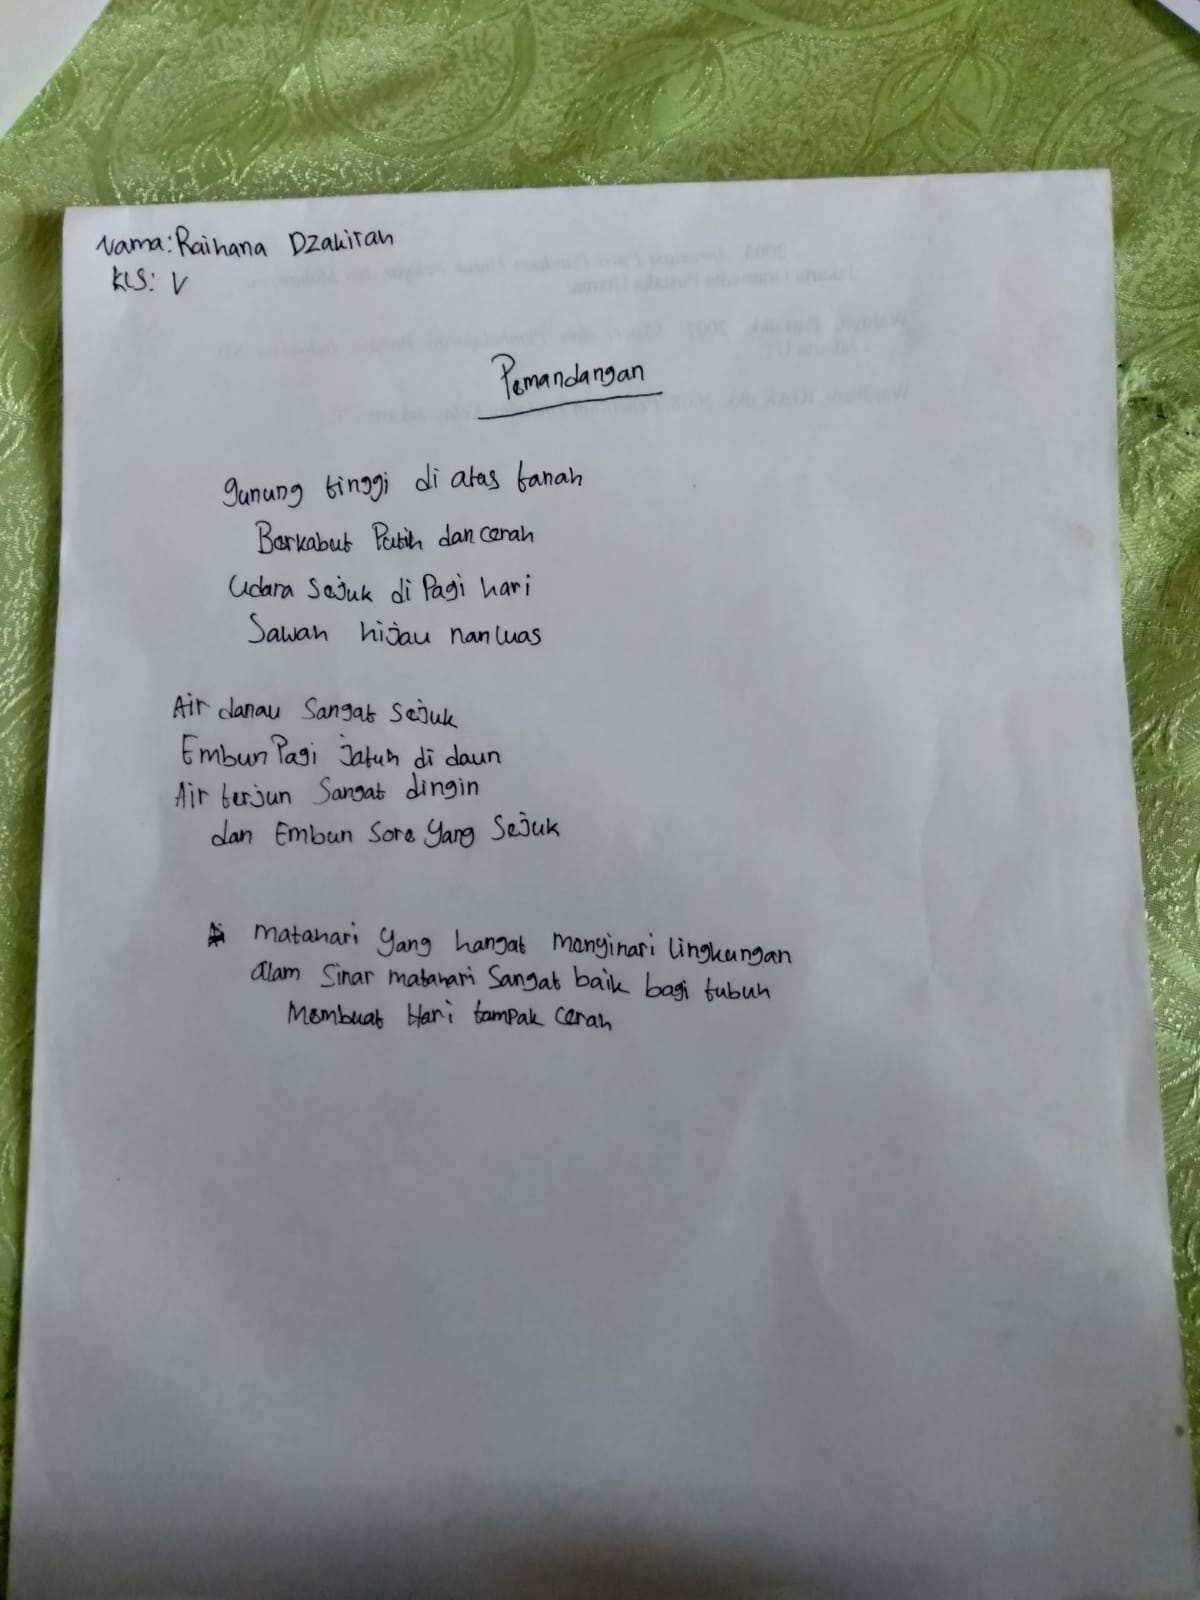 Nama: Raihana Dzakirah
KLS: V
Pemandangan
gunung tinggi di atas tanah
Berkabut Putih dan cerah
Udara Sejuk di Pagi hari
Sawah hijau nan luas
Air danau Sangat Sejuk
Embun Pagi jatuh di daun
Air terjun Sangat dingin
dan Embun Sore Yang Sejuk
matahari Yang hangat menyinari lingkungan
alam Sinar matahari Sangat baik bagi tubuh
Membuat Hari tampak Cerah